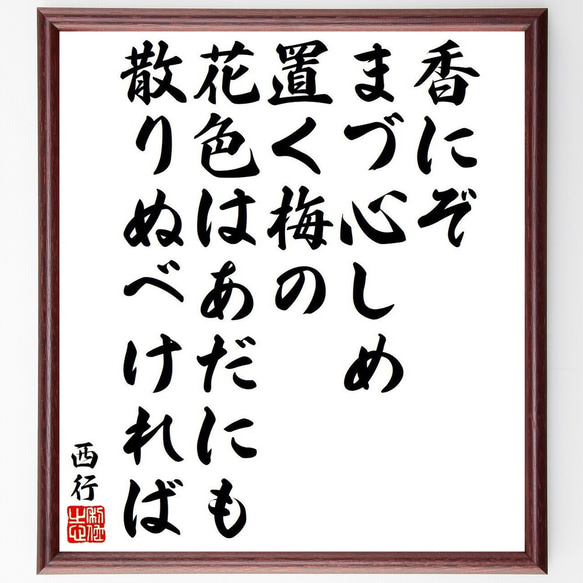 香にぞ
まづ心しめ
置く梅の
花色はあだにも
散りぬべければ
西行